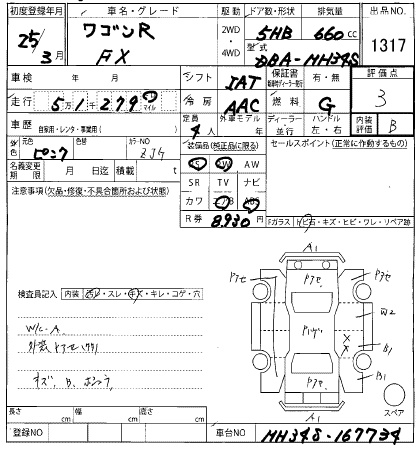 初度登録年月 車名・グレード 駆動 ドア数・形状 排気量 出品No.
25年3月 ワゴンR 2WD 5HB 660cc 1317
FX 4WD 型式 DBA-MH34S
車検 年 月 シフト IAT 保証書 有・無 評価点
走行 5万1千279 km マイル 冷房 AAC 燃料 G 3
車歴 自家用・レンタ・事業用( ) 定員 4人 外車モデル ディーラー・並行 ハンドル 左・右 内装評価 B
外色 元色 ピンク 色替 カラーNO ZJ4 装備品(純正品に限る) セールスポイント(正常に作動するもの)
PS PW AW
名義変更期限 月 日迄 積載 t SR TV ナビ
注意事項(欠品・修復・不具合箇所および状態) カワ エアB ABS
R券 8,930円 Fガラス トビ石・キズ・ヒビ・ワレ・リペア跡
A1
アセ アセ アセ
検査員記入 内装 コゲ・スレ・キズ・キレ・コゲ・穴
W/C-A
B1
B1
アセ
キズ、B、
A1
スペア
長さ cm 幅 cm 高さ cm
登録NO 車台NO MH34S-167734